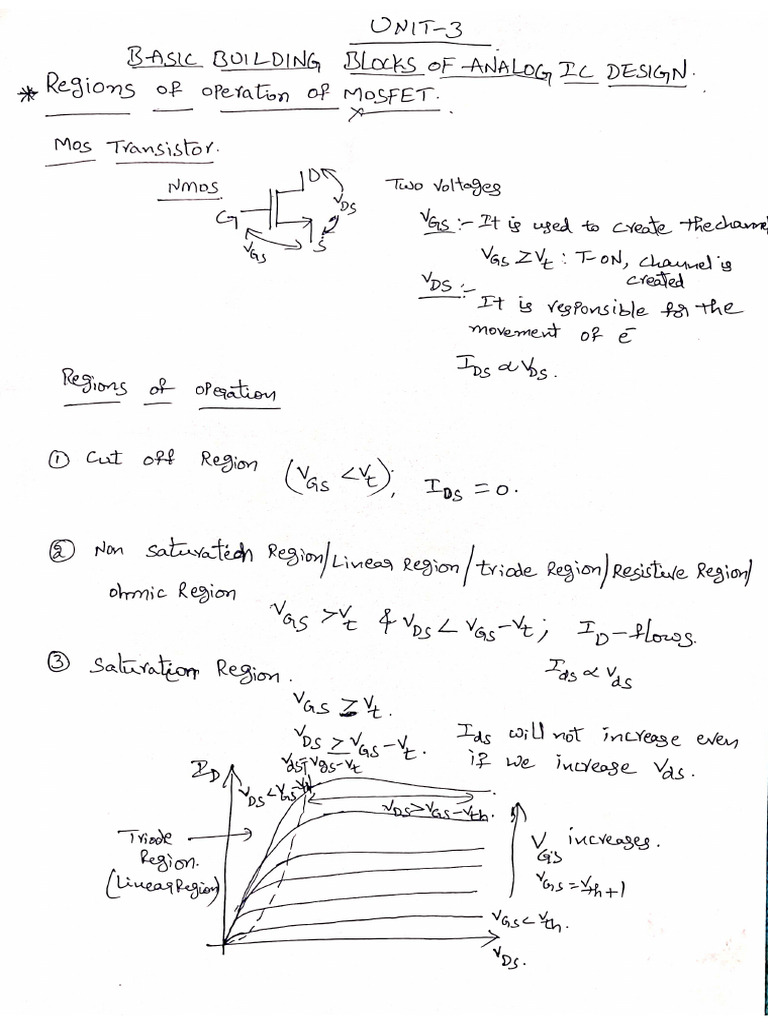 UNIT-3
BASIC BUILDING BLOCKS OF ANALOG IC DESIGN.
* Regions of operation of MOSFET.
Mos Transistor.
NMOS
D
G
S
VDS
VGS
Two voltages
VGS :- It is used to create the channel
VGS ≥ Vt : T-ON, channel is
created
VDS :-
It is responsible for the
movement of e̅
IDS ∝ VDS.
Regions of operation
① Cut off Region (VGS < Vt); IDS = 0.
② Non Saturation Region/Linear Region/triode Region/Resistive Region/
ohmic Region
VGS > Vt & VDS < VGS-Vt; ID-flows.
Ids ∝ Vds
③ Saturation Region.
VGS ≥ Vt.
VDS ≥ VGS-Vt.
Ids will not increase even
if we increase Vds.
Vds=Vgs-Vt
ID
VDS<VGS-Vth
VDS>VGS-Vth.
Triode
Region.
(Linear Region)
VGS increases.
VGS = Vth+1
VGS < Vth.
VDS.